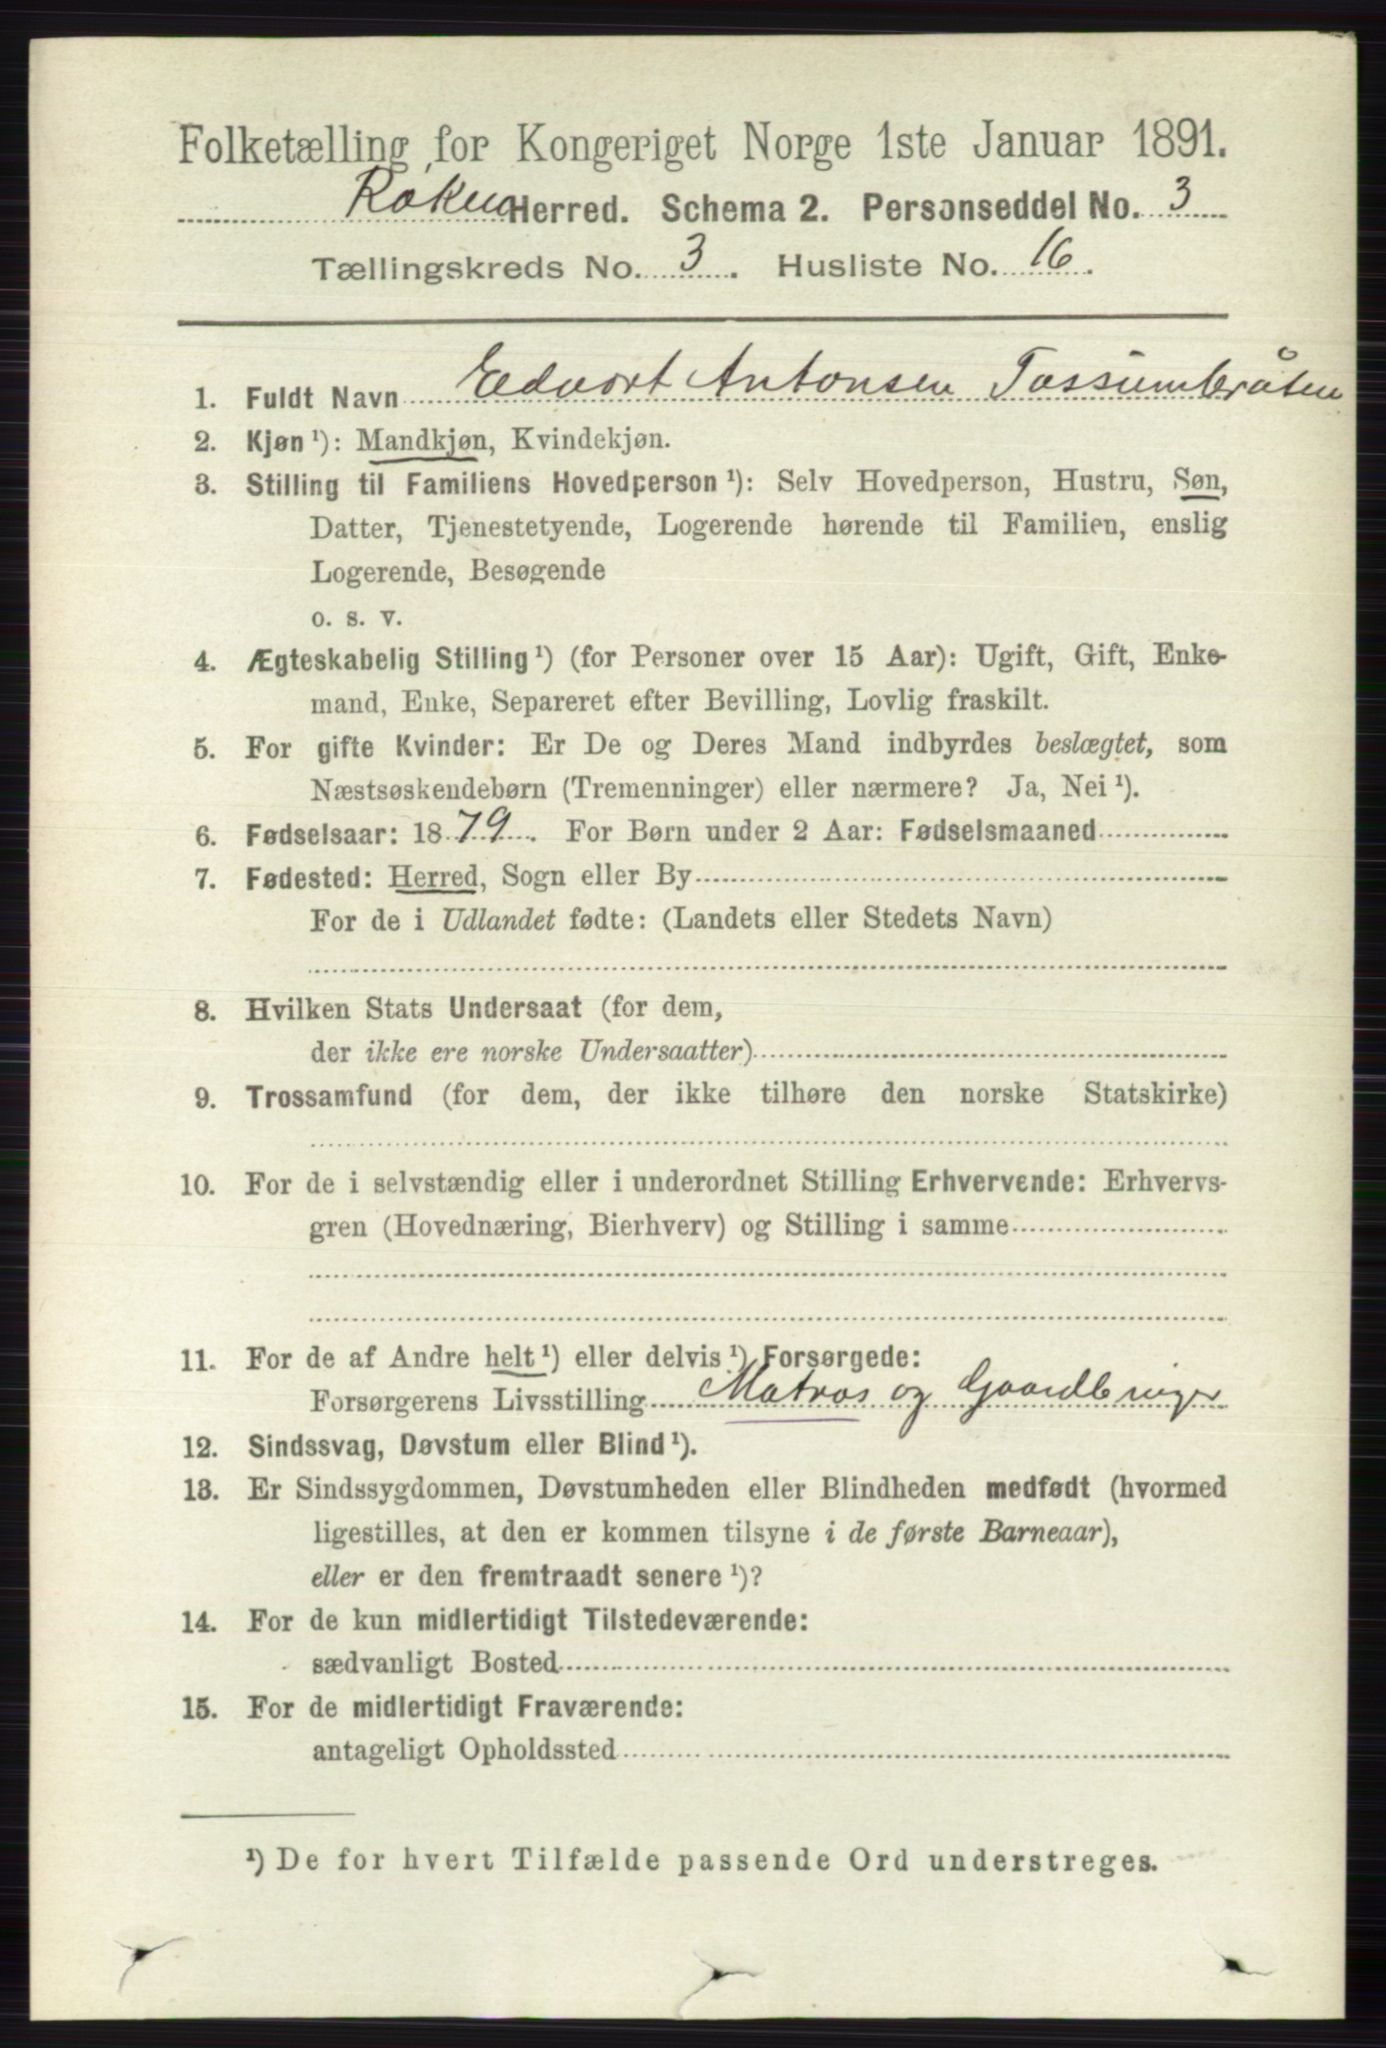 Folketælling for Kongeriget Norge 1ste Januar 1891.
Røken Herred. Schema 2. Personseddel No. 3
Tællingskreds No. 3. Husliste No. 16.
1. Fuldt Navn Edvart Antonsen Tassumbråten
2. Kjøn ¹): Mandkjøn, Kvindekjøn.
3. Stilling til Familiens Hovedperson ¹): Selv Hovedperson, Hustru, Søn,
Datter, Tjenestetyende, Logerende hørende til Familien, enslig
Logerende, Besøgende
o. s. v.
4. Ægteskabelig Stilling ¹) (for Personer over 15 Aar): Ugift, Gift, Enke-
mand, Enke, Separeret efter Bevilling, Lovlig fraskilt.
5. For gifte Kvinder: Er De og Deres Mand indbyrdes beslægtet, som
Næstsøskendebørn (Tremenninger) eller nærmere? Ja, Nei ¹).
6. Fødselsaar: 1879. For Børn under 2 Aar: Fødselsmaaned
7. Fødested: Herred, Sogn eller By
For de i Udlandet fødte: (Landets eller Stedets Navn)
8. Hvilken Stats Undersaat (for dem,
der ikke ere norske Undersaatter)
9. Trossamfund (for dem, der ikke tilhøre den norske Statskirke)
10. For de i selvstændig eller i underordnet Stilling Erhvervende: Erhvervs-
gren (Hovednæring, Bierhverv) og Stilling i samme
11. For de af Andre helt ¹) eller delvis ¹) Forsørgede:
Forsørgerens Livsstilling Matros og Gaardbruger
12. Sindssvag, Døvstum eller Blind ¹).
13. Er Sindssygdommen, Døvstumheden eller Blindheden medfødt (hvormed
ligestilles, at den er kommen tilsyne i de første Barneaar),
eller er den fremtraadt senere ¹)?
14. For de kun midlertidigt Tilstedeværende:
sædvanligt Bosted
15. For de midlertidigt Fraværende:
antageligt Opholdssted
¹) De for hvert Tilfælde passende Ord understreges.